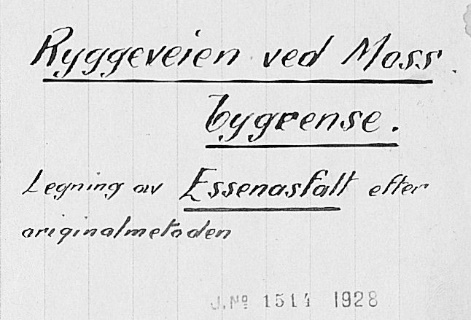 Ryggeveien ved Moss
bygrense.
Legning av Essenasfalt efter
originalmetoden
J.Nº 1514 1928